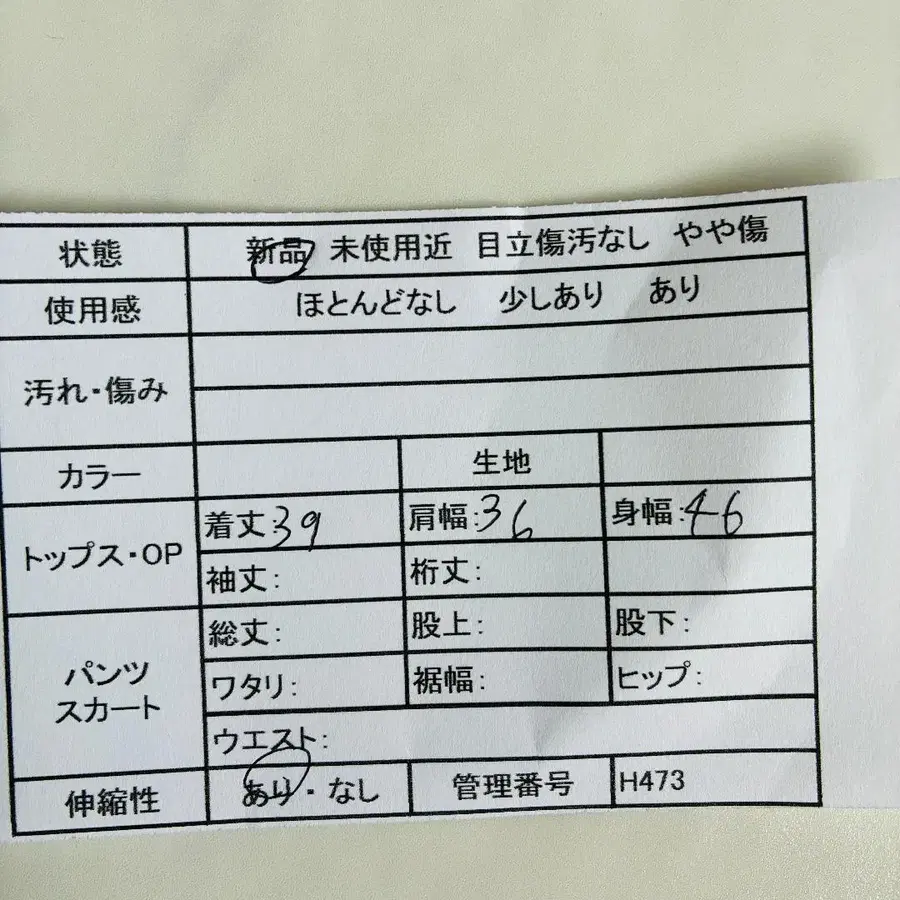 状態 新品 未使用近 目立傷汚なし やや傷
使用感 ほとんどなし 少しあり あり
汚れ・傷み
カラー 生地
トップス・OP
着丈:39 肩幅:36 身幅:46
袖丈: 裄丈:
パンツ
スカート
総丈: 股上: 股下:
ワタリ: 裾幅: ヒップ:
ウエスト:
伸縮性 あり・なし 管理番号 H473